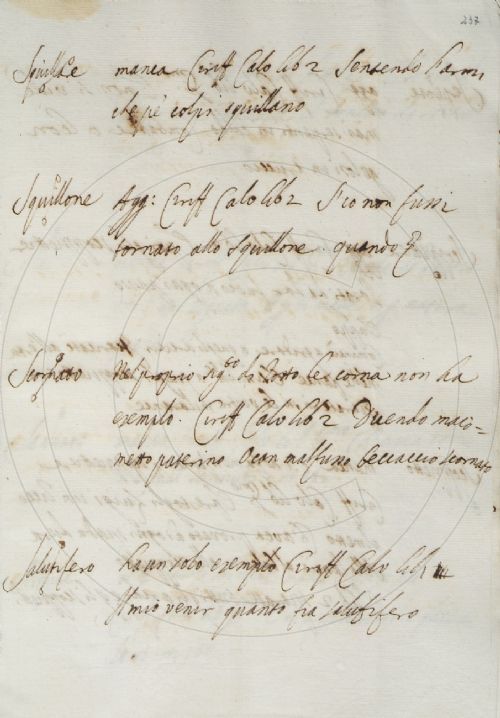 237
Squill:e manca Ciriff Calv lib 2 Sentendo l'armi
che pe' colpi squillano
Squillone Agg: Ciriff Calv lib 2 S'io non fussi
tornato allo squillone quando
Scornato Nel proprio sig:to di rotto le corna non ha
esempio. Ciriff Calv lib 2 Dicendo maco-
metto paterino O can malfusso beccaccio scornato
Salutifero ha un solo esempio Ciriff Calv lib
Il mio venir quanto fia salutifero